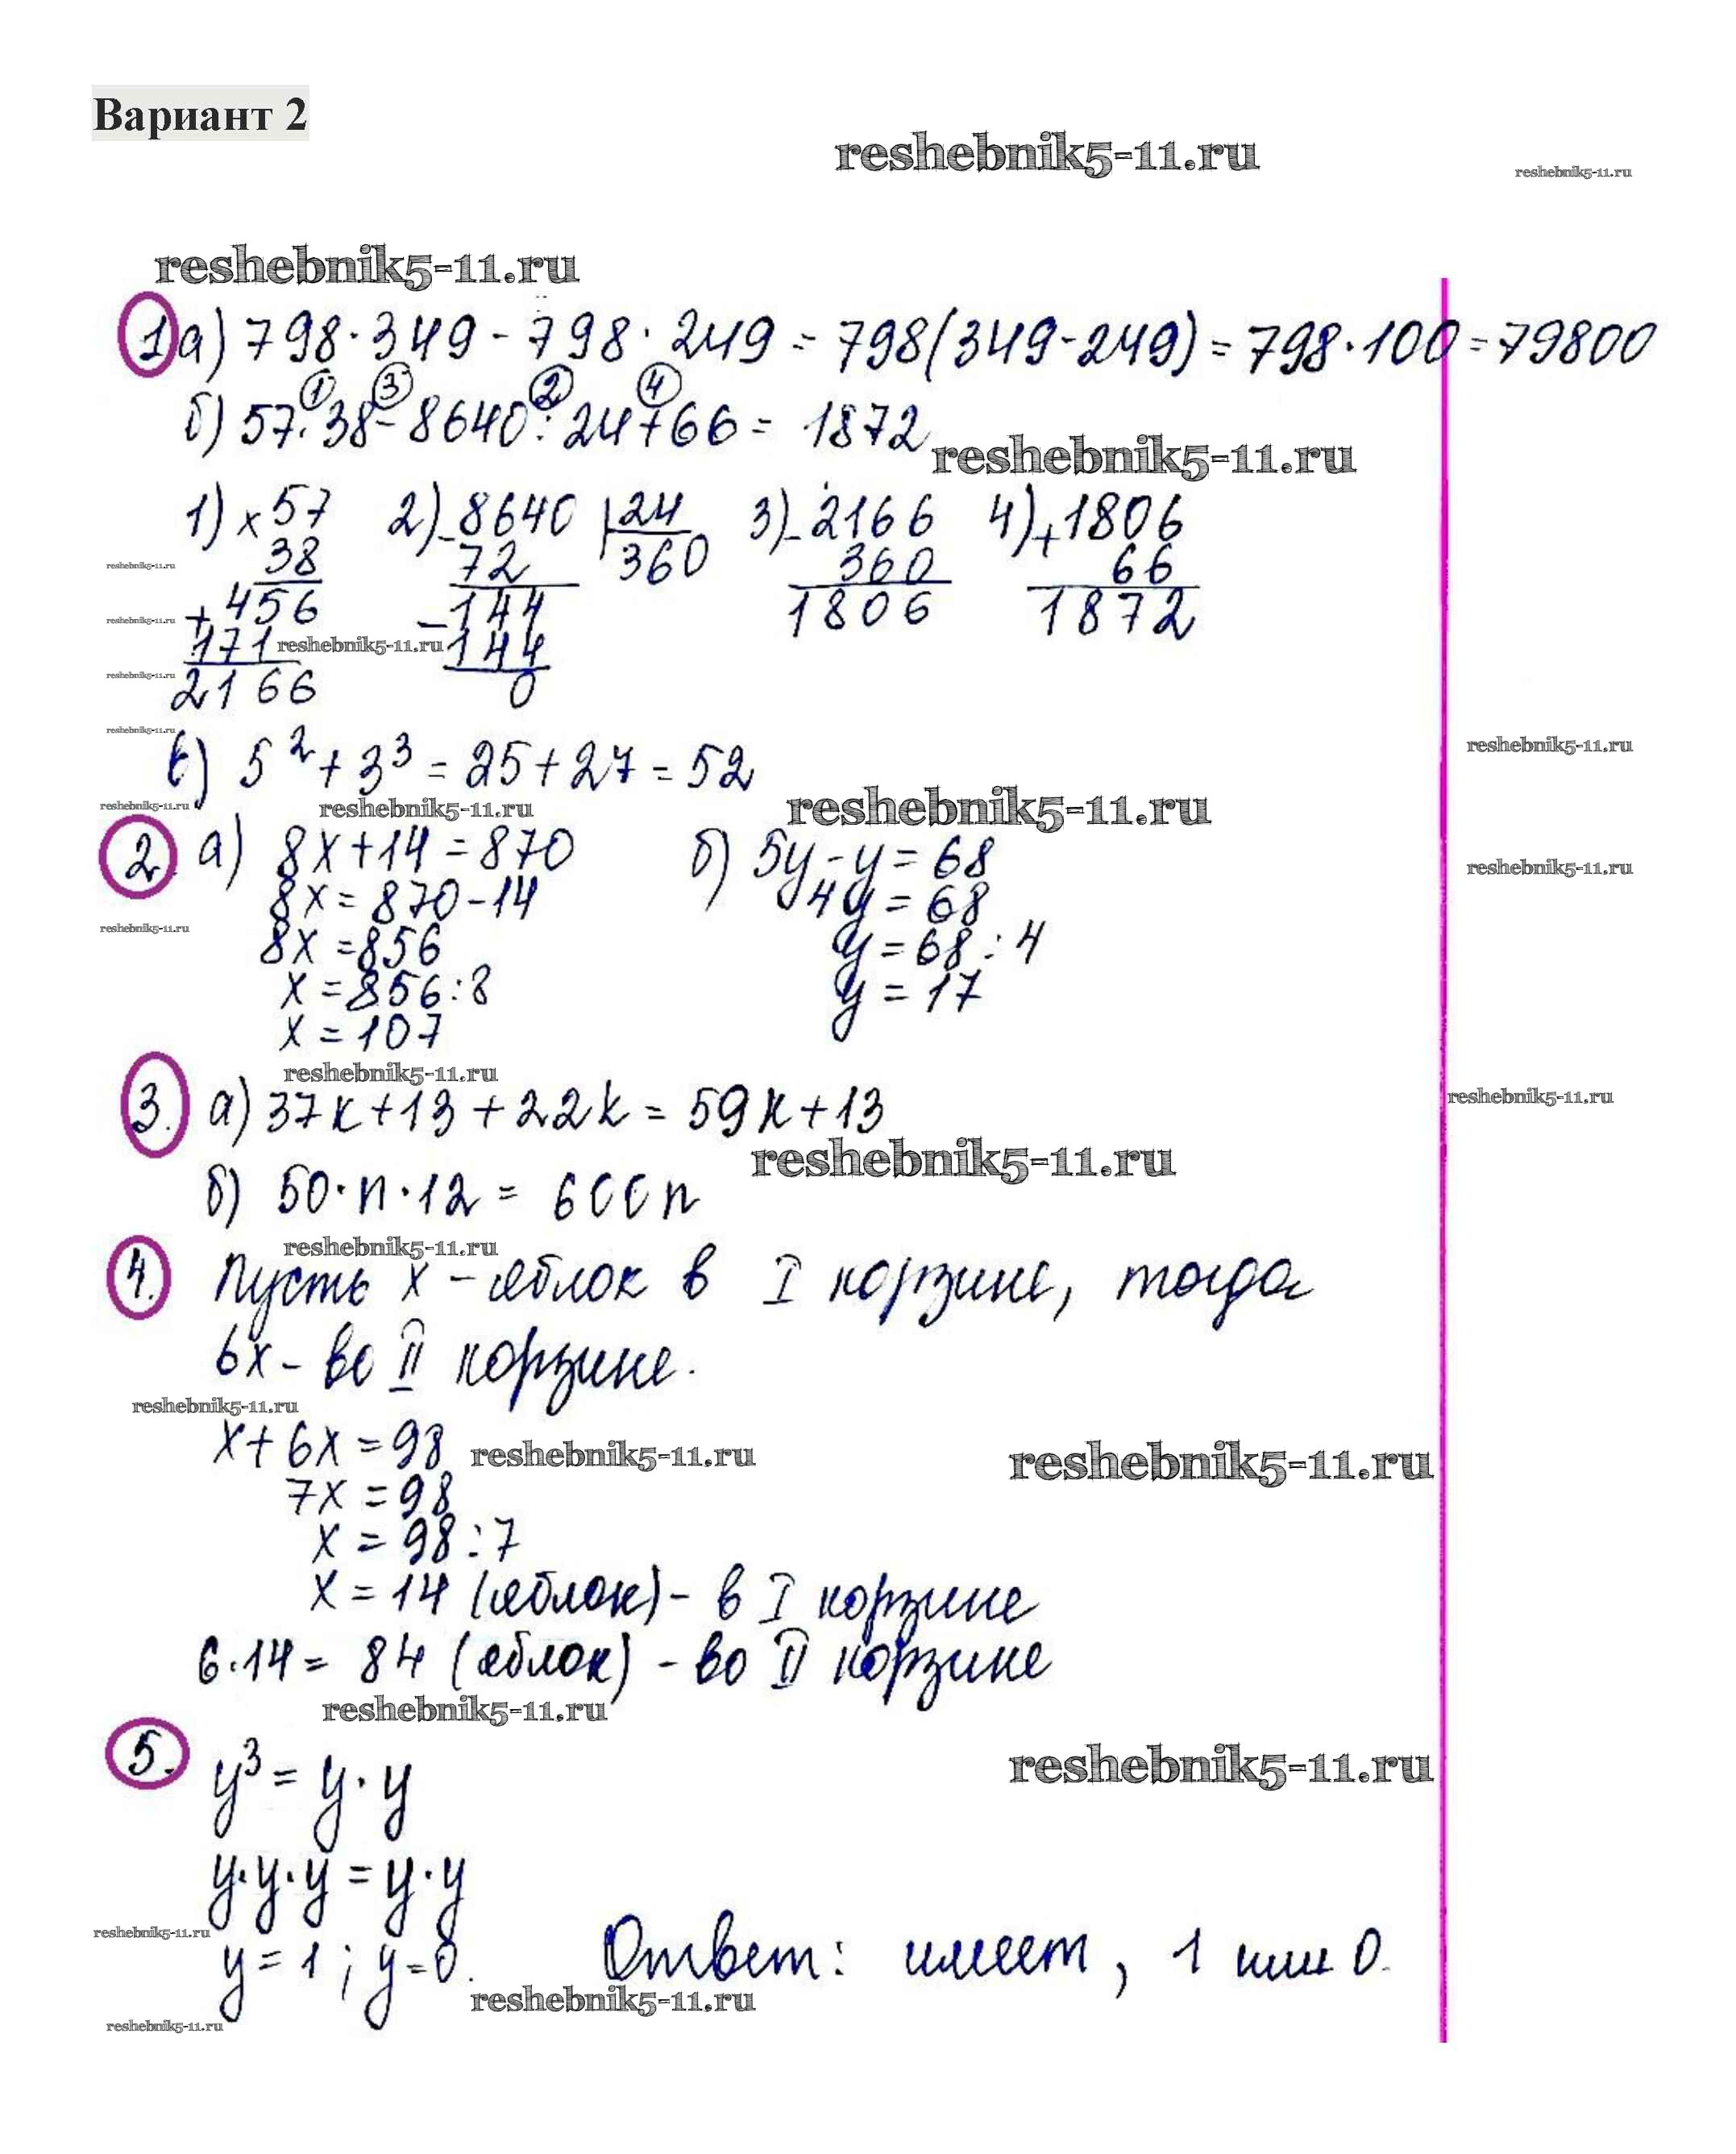 Вариант 2
reshebnik5-11.ru
reshebnik5-11.ru
reshebnik5-11.ru
1 а) 798·349 - 798·249 = 798(349-249) = 798·100 = 79800
① ③ ② ④
б) 57·38 - 8640:24+66 = 1872
reshebnik5-11.ru
1) × 57 2) - 8640 24 3) - 2166 4) + 1806
reshebnik5-11.ru 38 72 360 360 66
reshebnik5-11.ru + 456 - 144 1806 1872
171 reshebnik5-11.ru 144
reshebnik5-11.ru 2166 0
reshebnik5-11.ru
reshebnik5-11.ru
в) 5² + 3³ = 25 + 27 = 52
reshebnik5-11.ru reshebnik5-11.ru reshebnik5-11.ru
2. а) 8x+14=870 б) 5y-y=68
reshebnik5-11.ru
8x=870-14 4y=68
reshebnik5-11.ru
8x=856 y=68:4
x=856:8 y=17
x=107
reshebnik5-11.ru
3. а) 37k+13+22k=59k+13
reshebnik5-11.ru
reshebnik5-11.ru
б) 50·n·12= 600n
reshebnik5-11.ru
4. Пусть x - яблок в I корзине, тогда
6x - во II корзине.
reshebnik5-11.ru
x+6x=98 reshebnik5-11.ru reshebnik5-11.ru
7x=98
x=98:7
x=14 (яблок) - в I корзине
6·14= 84 (яблок) - во II корзине
reshebnik5-11.ru
5. y³=y·y
reshebnik5-11.ru
y·y·y=y·y
reshebnik5-11.ru
y=1; y=0. Ответ: имеет, 1 или 0.
reshebnik5-11.ru
reshebnik5-11.ru